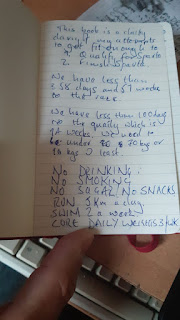 This book is a daily
diary of my
to get fit enough to
1. Qualify
2. Finish
We have less than
338 days and 57 weeks
to the race.
We have less than 100 days
to the qualify which is
weeks. We need to
be under 80 kg or
kgs least.
NO DRINKING.
NO SMOKING
NO SUGAR/NO SNACKS
RUN 5km a day.
SWIM 2 a week
CORE DAILY WEIGHTS 3